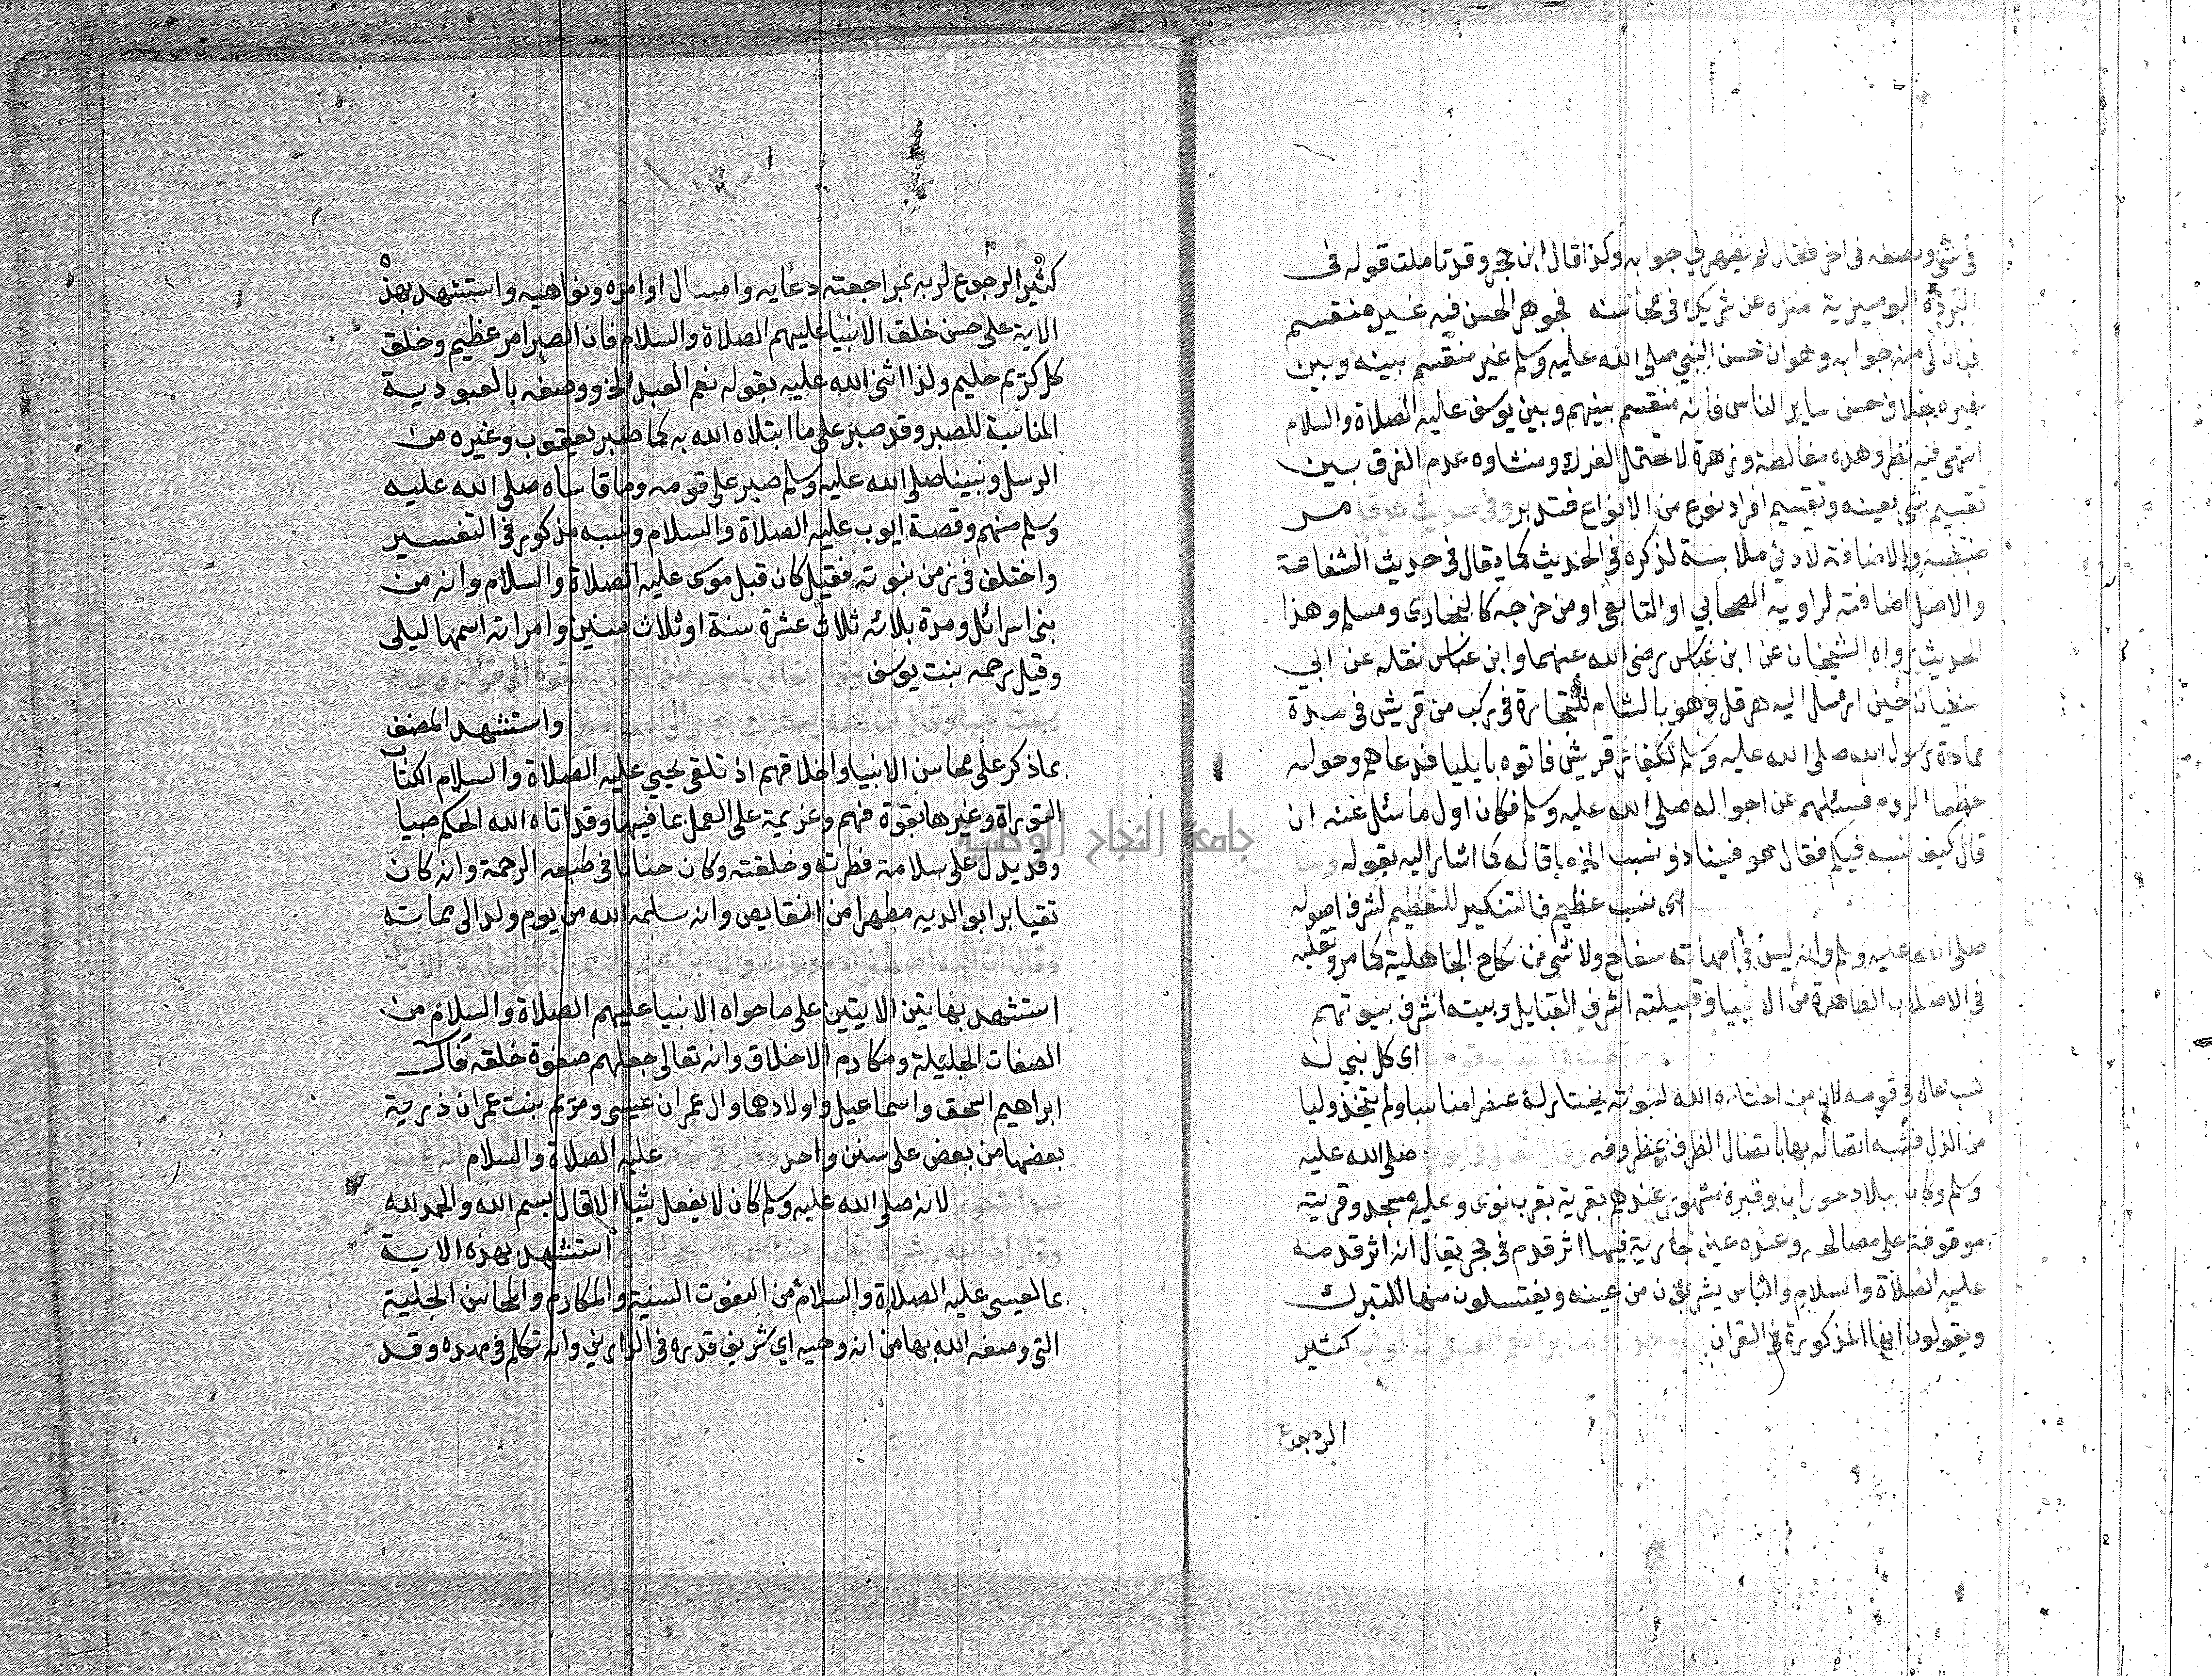 في شي ونصفه في اخر فقال لم يظهر لي جوابه وكذا قال ابن حجر وقد تاملت قوله في
البردة البوصيرية منزه عن شريك في محاسنه فجوهر الحسن فيه غير منقسم
فبان لي منه جوابه وهو ان حسن النبي صلى الله عليه وسلم غير منقسم بينه وبين
غيره بخلاف حسن ساير الناس فانه منقسم بينهم وبين يوسف عليه الصلاة والسلام
انتهى فيه نظر وهذه مغالطة وزهرة لا تحتمل الفرك ومنشاوه عدم الفرق بين
تقسيم شي بعينه وتقسيم افراد نوع من الانواع فتدبر وفي حديث هرقل مر
ضبطه والاضافة لادنى ملابسة لذكره في الحديث كما يقال في حديث الشفاعة
والاصل اضافته لراويه الصحابي او التابعي او من خرجه كالبخاري ومسلم وهذا
الحديث رواه الشيخان عن ابن عباس رضى الله عنهما وابن عباس نقله عن ابي
سفيان حين ارسل اليه هرقل وهو بالشام للتجارة في ركب من قريش في مدة
مادة رسول الله صلى الله عليه وسلم لكفار قريش فاتوه بايليا فدعاهم وحوله
عظما الروم فسئلهم عن احواله صلى الله عليه وسلم فكان اول ما سئل عنه ان
قال كيف نسبه فيكم فقال هو فينا ذو نسب الى اخر ما قاله كما اشار اليه بقوله
اى نسب عظيم فالتنكير للتعظيم لشرف اصوله
صلى الله عليه وسلم وانه ليس في امهاته سفاح ولا شى من نكاح الجاهلية كما مر وتقلبه
في الاصلاب الطاهرة من الانبيا وقبيلته اشرف القبايل وبيته اشرف بيوتهم
اى كل نبي له
نسب عال في قومه لان من اختاره الله لنبوته يختار له عنصرا مناسبا ولم يتخذ وليا
من الذل فشبه اتصاله بها باتصال الظرف بمظروفه وقال تعالى في ايوب صلى الله عليه
وسلم وكان ببلاد حوران وقبره مشهور عندهم بقرية بقرب نوى وعليه مسجد وقرية
موقوفة على مصالحه وعنده عين جارية فيها اثر قدم في حجر يقال انه اثر قدمه
عليه الصلاة والسلام والناس يشربون من عينه ويغتسلون منها للتبرك
ويقولون انها المذكورة في القران كثير
الرجوع
كثير الرجوع لربه بمراجعته دعايه وامتثال اوامره ونواهيه واستشهد بهذه
الاية على حسن خلق الانبيا عليهم الصلاة والسلام فان الصبر امر عظيم وخلق
كل كريم حليم ولذا اثنى الله عليه بقوله نعم العبد الخ ووصفه بالعبودية
المناسبة للصبر وقد صبر على ما ابتلاه الله به كما صبر يعقوب وغيره من
الرسل ونبينا صلى الله عليه وسلم صبر على قومه وما قاساه صلى الله عليه
وسلم منهم وقصة ايوب عليه الصلاة والسلام ونسبه مذكور في التفسير
واختلف في زمن نبوته فقيل كان قبل موسى عليه الصلاة والسلام وانه من
بني اسرائل ومدة بلائه ثلاث عشرة سنة او ثلاث سنين وامراته اسمها ليلى
وقيل رحمه بنت يوسف وقال تعالى يا يحيى خذ الكتاب بقوة الى قوله ويوم
يبعث حيا وقال ان الله يبشرك بيحيى الى الصالحين واستشهد المصنف
بما ذكر على محاسن الانبيا واخلاقهم اذ تلقى يحيى عليه الصلاة والسلام الكتاب
التوراة وغيرها بقوة فهم وعزيمة على العمل بما فيها وقد اتاه الله الحكم صبيا
وقد يدل على سلامة فطرته وخلقته وكان حنانا في طبعه الرحمة وانه كان
تقيا برا بوالديه مطهرا من النقايص وانه سلمه الله من يوم ولد الى مماته
وقال ان الله اصطفى ادم ونوحا وال ابراهيم وال عمران على العالمين الايتين
استشهد بهاتين الايتين على ما حواه الانبيا عليهم الصلاة والسلام من
الصفات الجليلة ومكارم الاخلاق وانه تعالى جعلهم صفوة خلقه فال
ابراهيم اسحق واسماعيل واولادهما وال عمران عيسى ومريم بنت عمران ذرية
بعضها من بعض على سنن واحد وقال في نوح عليه الصلاة والسلام انه كان
عبدا شكورا لانه صلى الله عليه وسلم كان لا يفعل شيا الا قال بسم الله والحمد لله
وقال ان الله يبشرك بكلمة منه اسمه المسيح الاية استشهد بهذه الاية
بما لعيسى عليه الصلاة والسلام من النعوت السنية والمكارم والمحاسن الجلية
التي وصفه الله بها من انه وجيه اي شريف قدره في الدارين وانه تكلم في مهده وقد
جامعة النجاح الوطنية